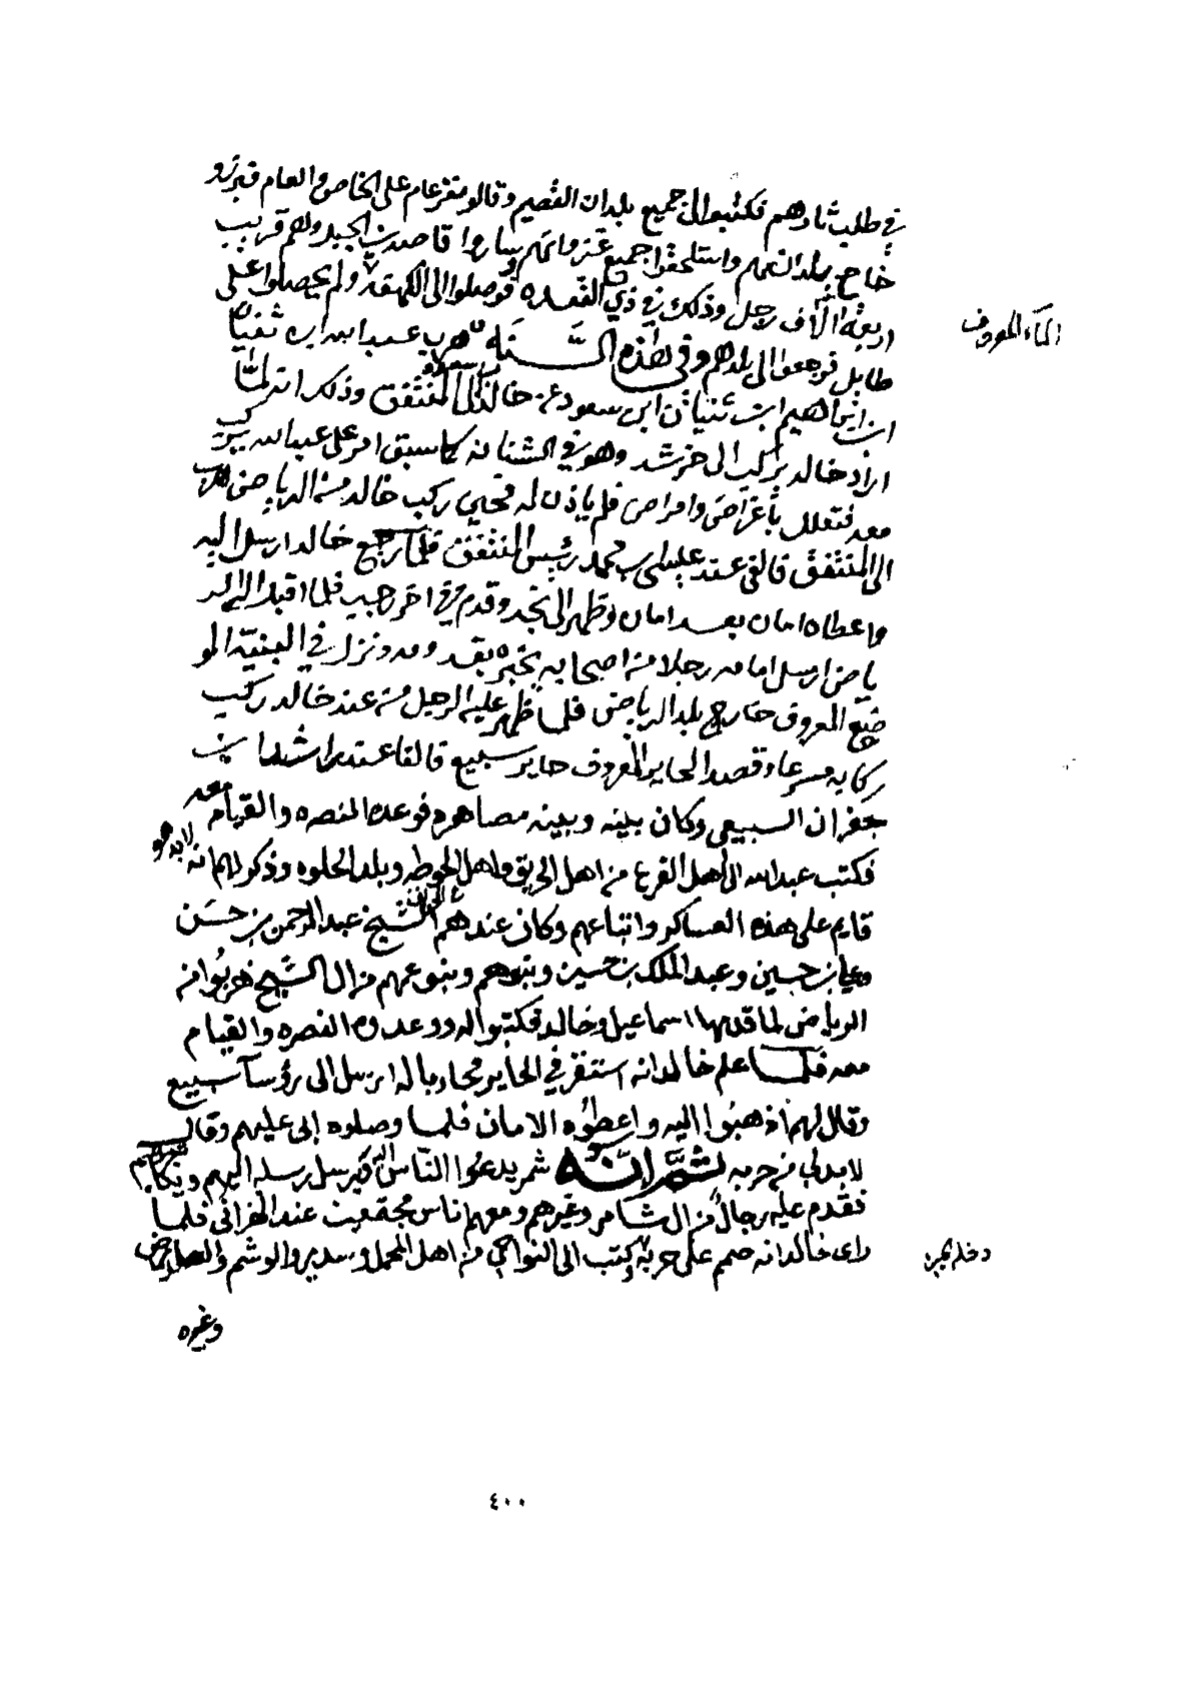 في طلب ثارهم فكتبوا الى جميع بلدان القصيم وقالو منفر عام على الخاص والعام فبرزو
خارج بلدانهم واستلحقوا جميع غزوانهم وساروا قاصدين الجبل وهم قريب
اربعة الآف رجل وذلك في ذي القعده فوصلوا الى الكهفه ولم يحصلوا على
الماء المعروف
طايل فرجعوا الى بلدهم وفي هذه السنه هرب عبدالله ابن ثنيان
ابن ابراهيم ابن ثنيان ابن سعود عن خالد الى المنتفق وذلك انه لما
اراد خالد يركب الى خرشد وهو في الشنانه كما سبق امر على عبدالله يركب
معه فتعلل بأغراض وامراض فلم ياذن له فحين ركب خالد من الرياض هرب
الى المنتفق فالفى عند عيسى بن محمد رئيس المنتفق فلما رجع خالد ارسل اليه
واعطاه امان بعد امان وظهر الى نجد وقدم في اخر رجب فلما اقبل الى الر
ياض ارسل امامه رجلا من اصحابه يخبره بقدومه ونزل في البنيّة المو
ضع المعروف خارج بلد الرياض فلما ظهر عليه الرجل من عند خالد ركب
ركابه مسرعا وقصد الحاير المعروف حاير سبيع فالفا عند راشد ابن
جفران السبيعي وكان بينه وبينه مصاهره فوعده النصره والقيام معه
فكتب عبدالله الى اهل الفرع من اهل الحريق واهل الحوطه وبلد الحلوه وذكر لهم انه لابد هو
قايم على هذه العساكر واتباعهم وكان عندهم الشيخ عبدالرحمن بن حسن
وعلي بن حسين وعبدالملك بن حسين وبنوهم وبنو عمهم من ال الشيخ هربوا من
الرياض لما قدمها اسماعيل وخالد فكتبوا له ووعدوه النصره والقيام
معه فلما علم خالد انه استنفر في الحاير محاربا له ارسل الى رؤسآ سبيع
وقال لهم اذهبوا اليه واعطوه الامان فلما وصلوه ابى عليهم وقال
لابد لي من حربه ثم انه شمر يدعوا الناس الى ويرسل رسله اليهم ويكاتبهم
فقدم عليه رجال من ال شامر وغيرهم ومعهم ناس مجتمعين عند الهزاني فلما
راى خالد انه صمم على حربه كتب الى النواحي من اهل المحمل وسدير والوشم والعارض
وغيره
٤٠٠